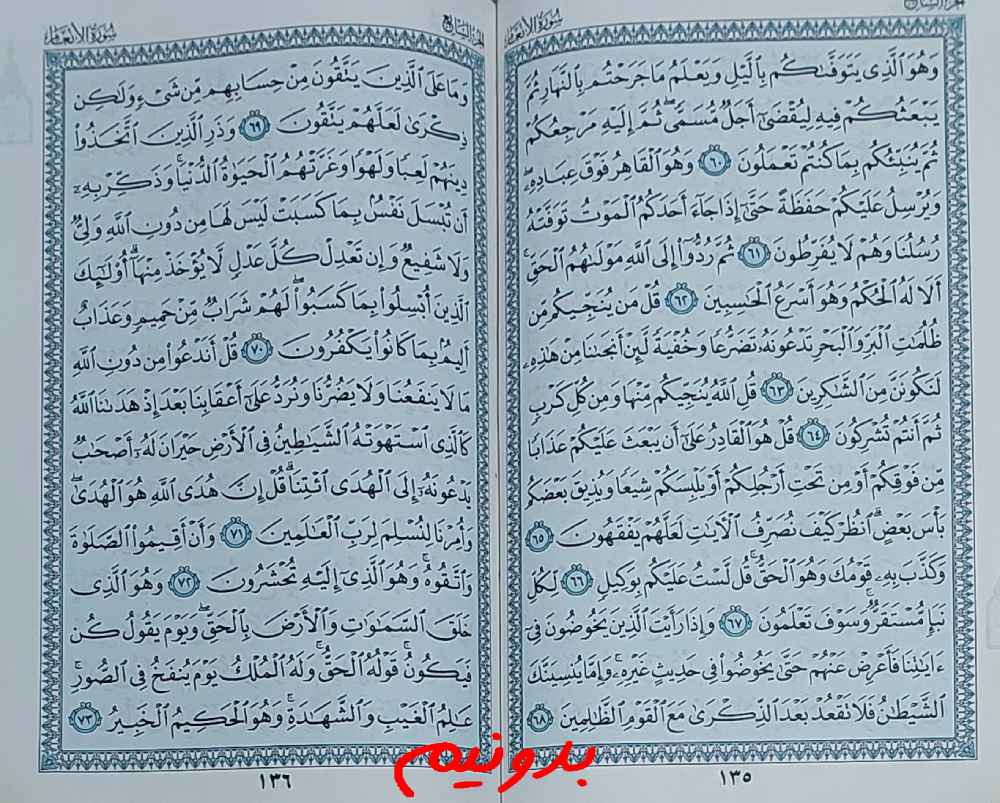 الجزء السابع
سورة الأنعام
وَهُوَ ٱلَّذِى يَتَوَفَّىٰكُم بِٱلَّيْلِ وَيَعْلَمُ مَا جَرَحْتُم بِٱلنَّهَارِ ثُمَّ
يَبْعَثُكُمْ فِيهِ لِيُقْضَىٰٓ أَجَلٌ مُّسَمًّى ۖ ثُمَّ إِلَيْهِ مَرْجِعُكُمْ
ثُمَّ يُنَبِّئُكُم بِمَا كُنتُمْ تَعْمَلُونَ ٦٠ وَهُوَ ٱلْقَاهِرُ فَوْقَ عِبَادِهِۦ ۖ
وَيُرْسِلُ عَلَيْكُمْ حَفَظَةً حَتَّىٰٓ إِذَا جَآءَ أَحَدَكُمُ ٱلْمَوْتُ تَوَفَّتْهُ
رُسُلُنَا وَهُمْ لَا يُفَرِّطُونَ ٦١ ثُمَّ رُدُّوٓا۟ إِلَى ٱللَّهِ مَوْلَىٰهُمُ ٱلْحَقِّ ۚ
أَلَا لَهُ ٱلْحُكْمُ وَهُوَ أَسْرَعُ ٱلْحَٰسِبِينَ ٦٢ قُلْ مَن يُنَجِّيكُم مِّن
ظُلُمَٰتِ ٱلْبَرِّ وَٱلْبَحْرِ تَدْعُونَهُۥ تَضَرُّعًا وَخُفْيَةً لَّئِنْ أَنجَىٰنَا مِنْ هَٰذِهِۦ
لَنَكُونَنَّ مِنَ ٱلشَّٰكِرِينَ ٦٣ قُلِ ٱللَّهُ يُنَجِّيكُم مِّنْهَا وَمِن كُلِّ كَرْبٍ
ثُمَّ أَنتُمْ تُشْرِكُونَ ٦٤ قُلْ هُوَ ٱلْقَادِرُ عَلَىٰٓ أَن يَبْعَثَ عَلَيْكُمْ عَذَابًا
مِّن فَوْقِكُمْ أَوْ مِن تَحْتِ أَرْجُلِكُمْ أَوْ يَلْبِسَكُمْ شِيَعًا وَيُذِيقَ بَعْضَكُم
بَأْسَ بَعْضٍ ۗ ٱنظُرْ كَيْفَ نُصَرِّفُ ٱلْءَايَٰتِ لَعَلَّهُمْ يَفْقَهُونَ ٦٥
وَكَذَّبَ بِهِۦ قَوْمُكَ وَهُوَ ٱلْحَقُّ ۚ قُل لَّسْتُ عَلَيْكُم بِوَكِيلٍ ٦٦ لِّكُلِّ
نَبَإٍ مُّسْتَقَرٌّ ۚ وَسَوْفَ تَعْلَمُونَ ٦٧ وَإِذَا رَأَيْتَ ٱلَّذِينَ يَخُوضُونَ فِىٓ
ءَايَٰتِنَا فَأَعْرِضْ عَنْهُمْ حَتَّىٰ يَخُوضُوا۟ فِى حَدِيثٍ غَيْرِهِۦ ۚ وَإِمَّا يُنسِيَنَّكَ
ٱلشَّيْطَٰنُ فَلَا تَقْعُدْ بَعْدَ ٱلذِّكْرَىٰ مَعَ ٱلْقَوْمِ ٱلظَّٰلِمِينَ ٦٨
١٣٥
الجزء السابع
سورة الأنعام
وَمَا عَلَى ٱلَّذِينَ يَتَّقُونَ مِنْ حِسَابِهِم مِّن شَىْءٍ وَلَٰكِن
ذِكْرَىٰ لَعَلَّهُمْ يَتَّقُونَ ٦٩ وَذَرِ ٱلَّذِينَ ٱتَّخَذُوا۟
دِينَهُمْ لَعِبًا وَلَهْوًا وَغَرَّتْهُمُ ٱلْحَيَوٰةُ ٱلدُّنْيَا ۚ وَذَكِّرْ بِهِۦٓ
أَن تُبْسَلَ نَفْسٌۢ بِمَا كَسَبَتْ لَيْسَ لَهَا مِن دُونِ ٱللَّهِ وَلِىٌّ
وَلَا شَفِيعٌ وَإِن تَعْدِلْ كُلَّ عَدْلٍ لَّا يُؤْخَذْ مِنْهَآ ۗ أُو۟لَٰٓئِكَ
ٱلَّذِينَ أُبْسِلُوا۟ بِمَا كَسَبُوا۟ ۖ لَهُمْ شَرَابٌ مِّنْ حَمِيمٍ وَعَذَابٌ
أَلِيمٌۢ بِمَا كَانُوا۟ يَكْفُرُونَ ٧٠ قُلْ أَنَدْعُوا۟ مِن دُونِ ٱللَّهِ
مَا لَا يَنفَعُنَا وَلَا يَضُرُّنَا وَنُرَدُّ عَلَىٰٓ أَعْقَابِنَا بَعْدَ إِذْ هَدَىٰنَا ٱللَّهُ
كَٱلَّذِى ٱسْتَهْوَتْهُ ٱلشَّيَٰطِينُ فِى ٱلْأَرْضِ حَيْرَانَ لَهُۥٓ أَصْحَٰبٌ
يَدْعُونَهُۥٓ إِلَى ٱلْهُدَى ٱئْتِنَا ۗ قُلْ إِنَّ هُدَى ٱللَّهِ هُوَ ٱلْهُدَىٰ ۖ
وَأُمِرْنَا لِنُسْلِمَ لِرَبِّ ٱلْعَٰلَمِينَ ٧١ وَأَنْ أَقِيمُوا۟ ٱلصَّلَوٰةَ
وَٱتَّقُوهُ ۚ وَهُوَ ٱلَّذِىٓ إِلَيْهِ تُحْشَرُونَ ٧٢ وَهُوَ ٱلَّذِى
خَلَقَ ٱلسَّمَٰوَٰتِ وَٱلْأَرْضَ بِٱلْحَقِّ ۖ وَيَوْمَ يَقُولُ كُن
فَيَكُونُ ۚ قَوْلُهُ ٱلْحَقُّ ۚ وَلَهُ ٱلْمُلْكُ يَوْمَ يُنفَخُ فِى ٱلصُّورِ ۚ
عَٰلِمُ ٱلْغَيْبِ وَٱلشَّهَٰدَةِ ۚ وَهُوَ ٱلْحَكِيمُ ٱلْخَبِيرُ ٧٣
١٣٦
بدونیم